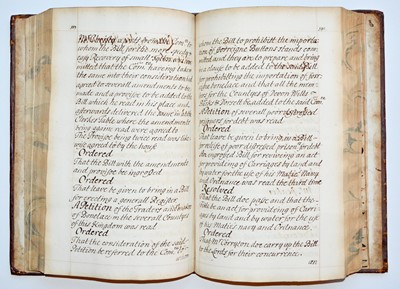 whom the Bill for the more speedy
easy Recovery of small
mitted that the Com:tee having taken
the same into their consideration had
agreed to overall amendments to be
made and a proviso to be added to the
Bill which he read in his place and
afterwards delivered the same in at the
Clerks Table where the amendments
being again read were agreed to
The Proviso being twice read was like
wise agreed to by the house
Ordered
That the Bill with the amendments
and proviso be ingrossed
Ordered
That leave be given to bring in a Bill
for creating a general Register
A Petition of the Traders
of Bonelace in the several Countys
of this Kingdom was read
Ordered
That the consideration of the said
Petition be referred to the Com:tee
whom the Bill to prohibitt the importa
tion of foreigne Buttons stands com
mitted and they are to prepare and bring
in a clause to be added to the said Bill
for prohibiting the importation of for
raigne bonelace and that all the mem
bers for the Countys of Devon Wilts
and Dorsett be added to the said Com:
A Petition of overall poor distressed
prisoners for debt was read
Ordered
That leave be given to bring in a Bill
for reliefe of poor distressed prison:rs for debt
An ingrossed Bill for reviveing an act
for provideing of Carriages by Land and
by water for the use of his Ma:ties Navy
and Ordnance was read the third time
Resolved
That the Bill doe passe and that the
title be an act for provideing of Carri
ages by Land and by water for the use
of his Ma:ties navy and Ordnance.
Ordered
That Mr Corryton doe carry up the Bill
to the Lords for their concurrence.